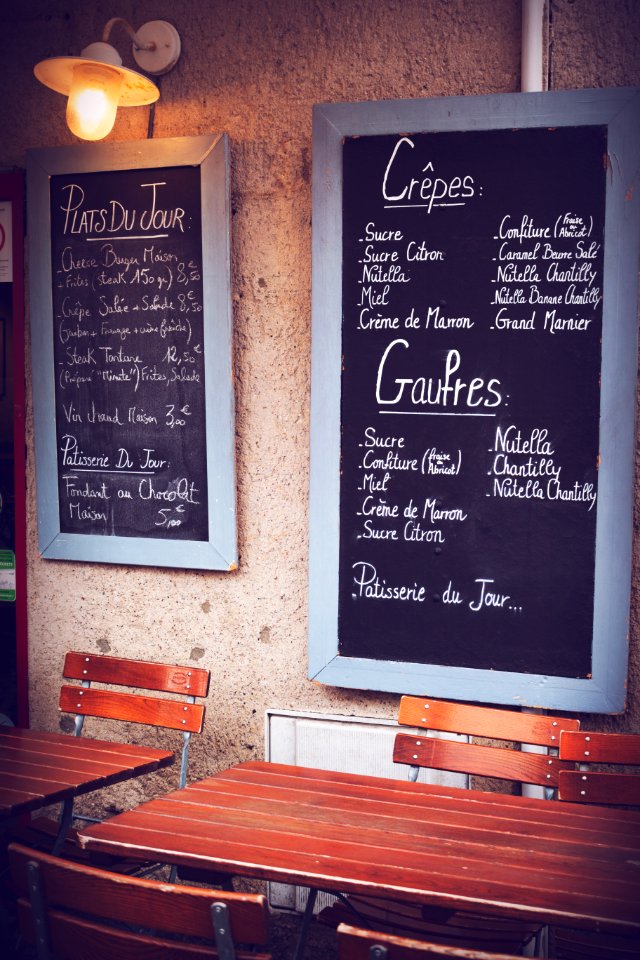 PLATS DU JOUR:
Cheese Burger Maison
Frites (steak 150 gr) 8,50€
Crêpe Salée + Salade 8,50€
(Jambon + Fromage + crème fraîche)
Steak Tartare 12,50€
(Préparé "Minute") Frites, Salade
Vin chaud Maison 3,00€
Patisserie Du Jour:
Fondant au Chocolat
Maison 5,00€
Crêpes:
-Sucre
-Sucre Citron
-Nutella
-Miel
-Crème de Marron
-Confiture (Fraise ou Abricot)
-Caramel Beurre Salé
-Nutella Chantilly
-Nutella Banane Chantilly
-Grand Marnier
Gaufres:
-Sucre
-Confiture (Fraise ou Abricot)
-Miel
-Crème de Marron
-Sucre Citron
-Nutella
-Chantilly
-Nutella Chantilly
-Patisserie du Jour...